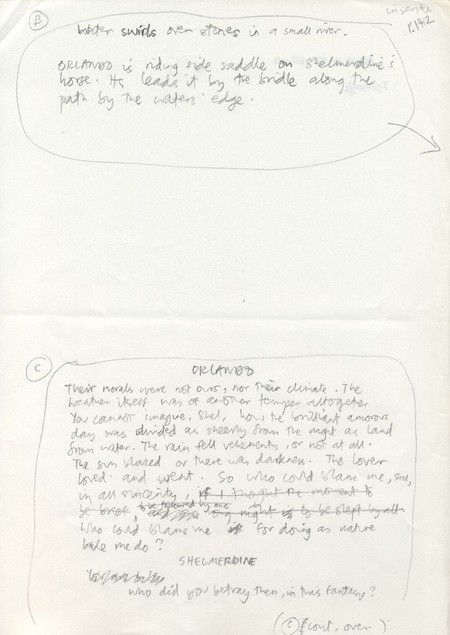 inserts
p.142
B
Water swirls over stones in a small river.
ORLANDO is riding side saddle on Shelmerdine's
horse. He leads it by the bridle along the
path by the waters' edge.
C
ORLANDO
Their morals were not ours; nor their climate. The
weather itself was of another temper altogether
You cannot imagine, Shel, how the brilliant amorous
day was divided as sheerly from the night as land
from water. The rain fell vehemently, or not at all.
The sun blazed or there was darkness. The lover
loved and went. So who could blame me, Shel,
in all sincerity, if I thought the moment to
be brief, to be followed by one night to be slept by all
Who could blame me for doing as nature
bade me do?
SHELMERDINE
who did you betray then, in this fantasy?
(C) (cont. over)